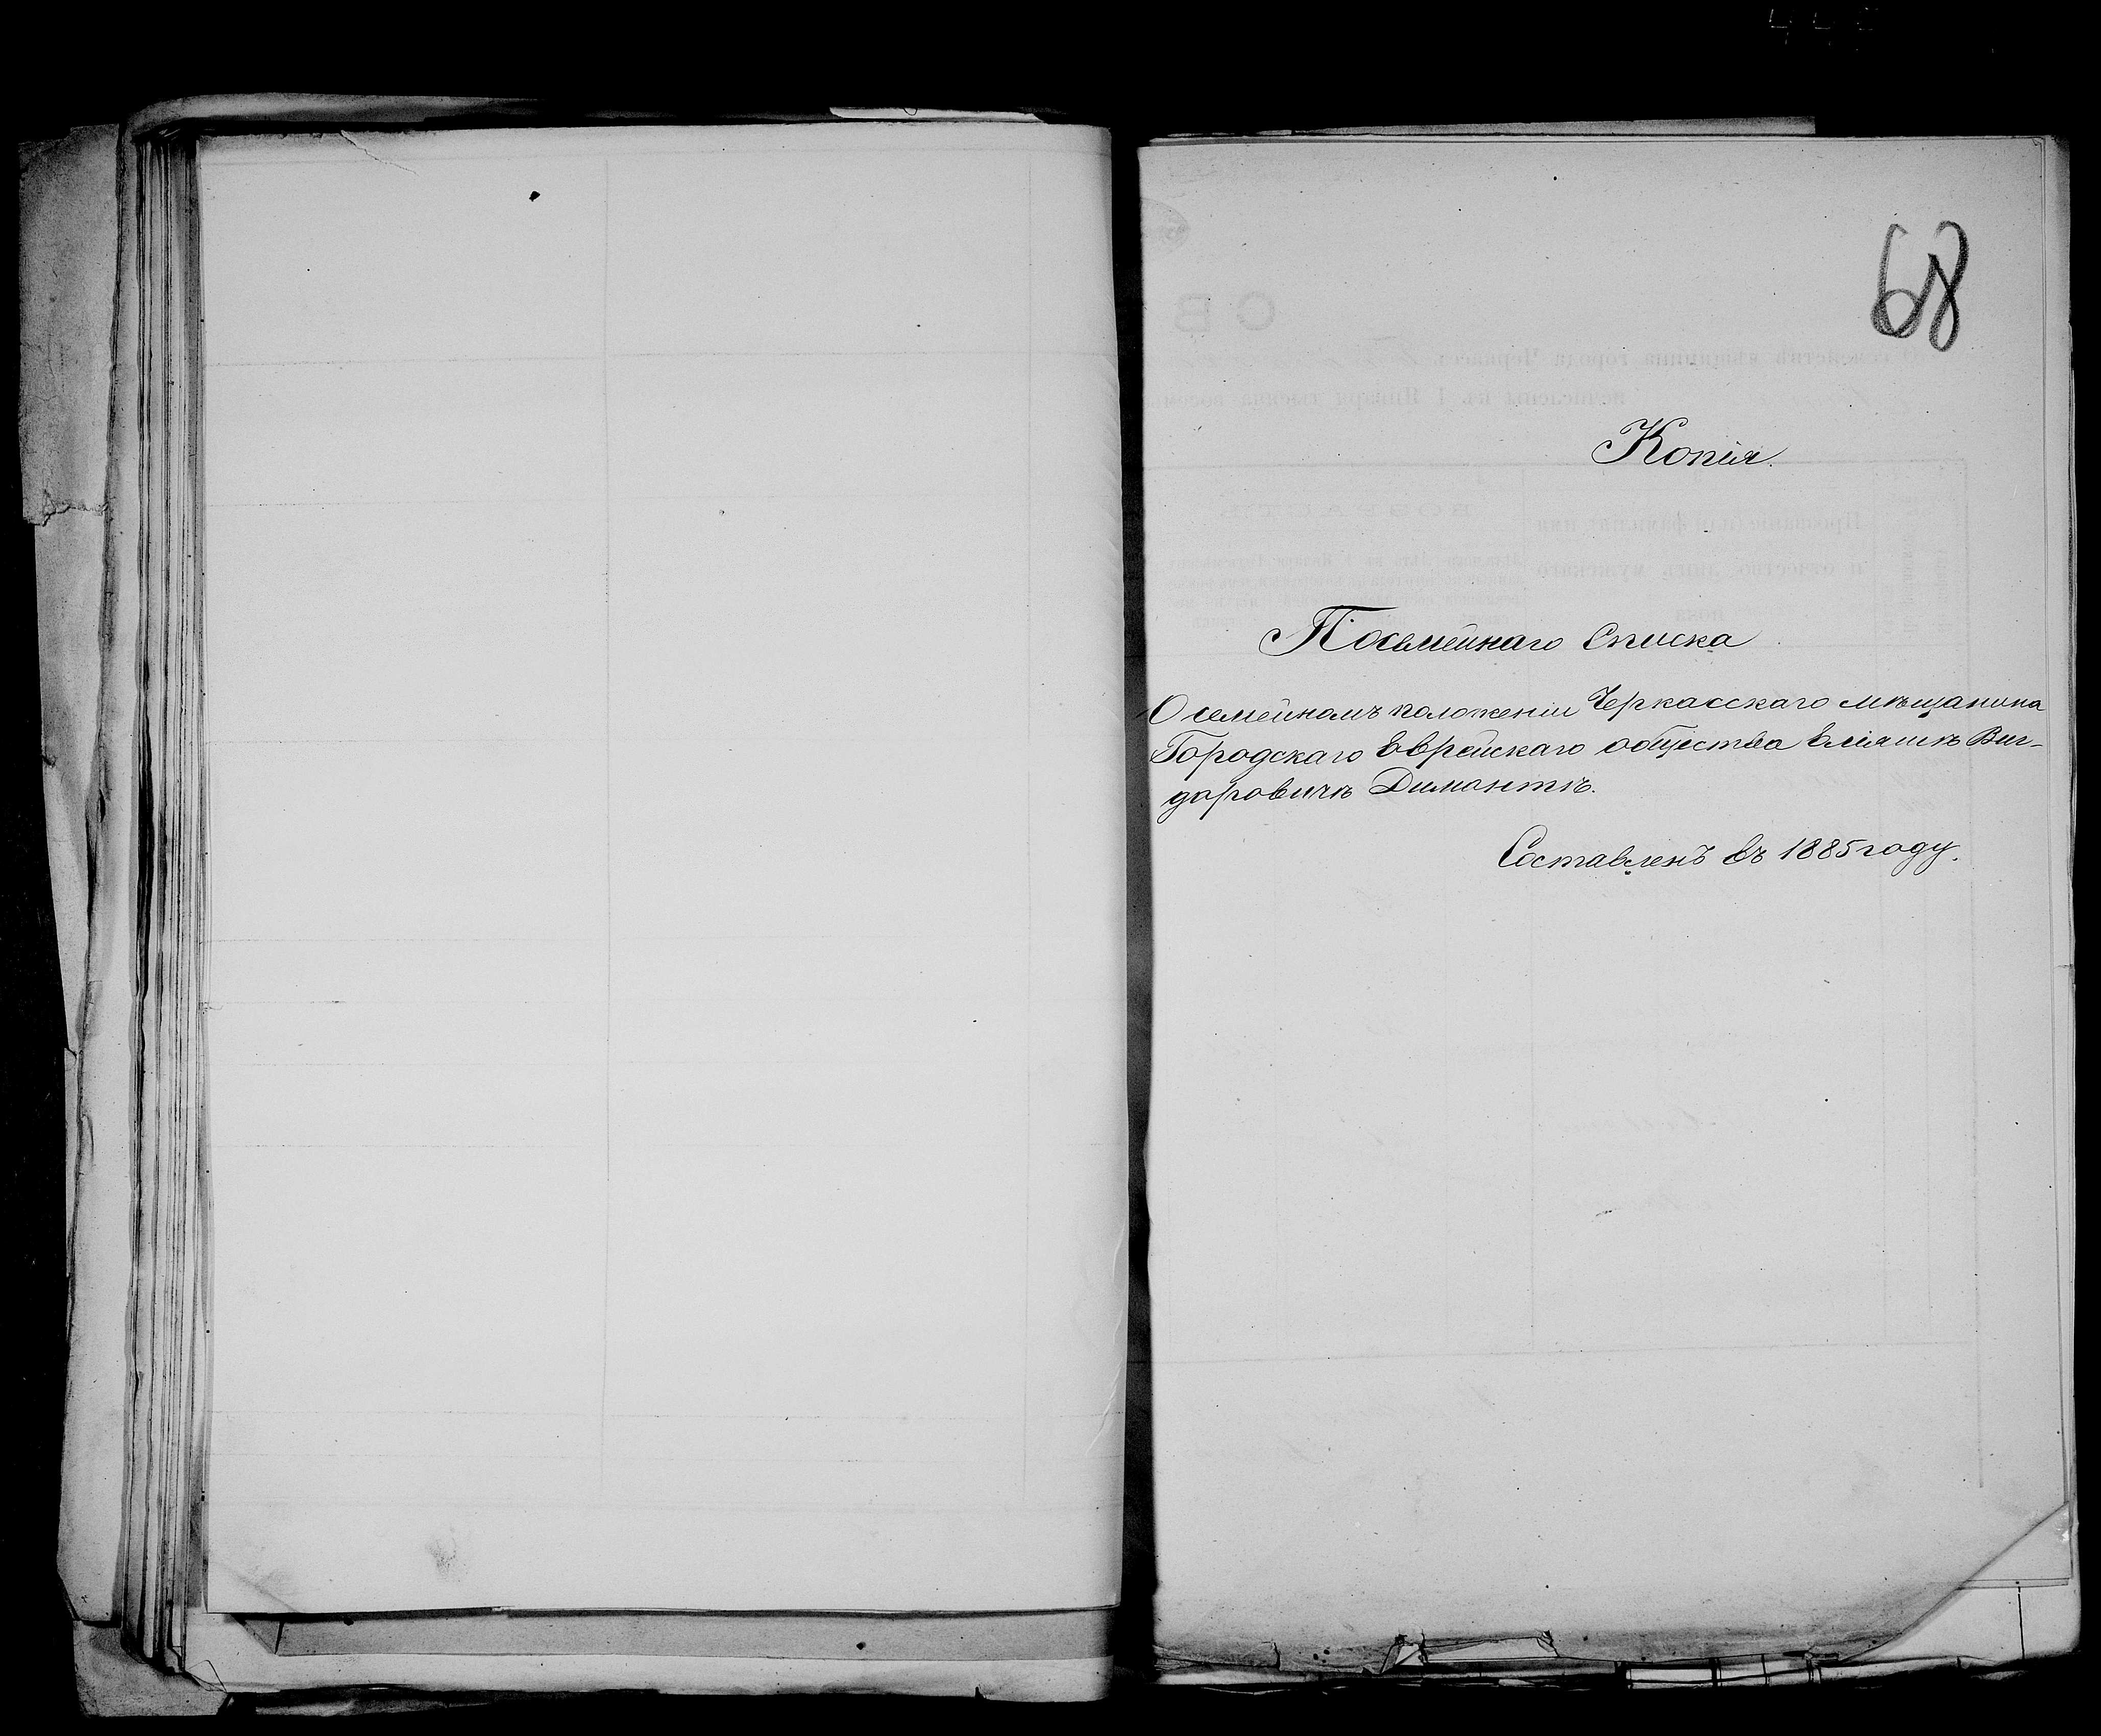 68
Копія.
Посемейнаго Списка
О семейномъ положеніи Черкасскаго мѣщанина
Городскаго Еврейскаго общества Еліяшѣ Виг-
доровичѣ Димантѣ.
Составленъ въ 1885 году.